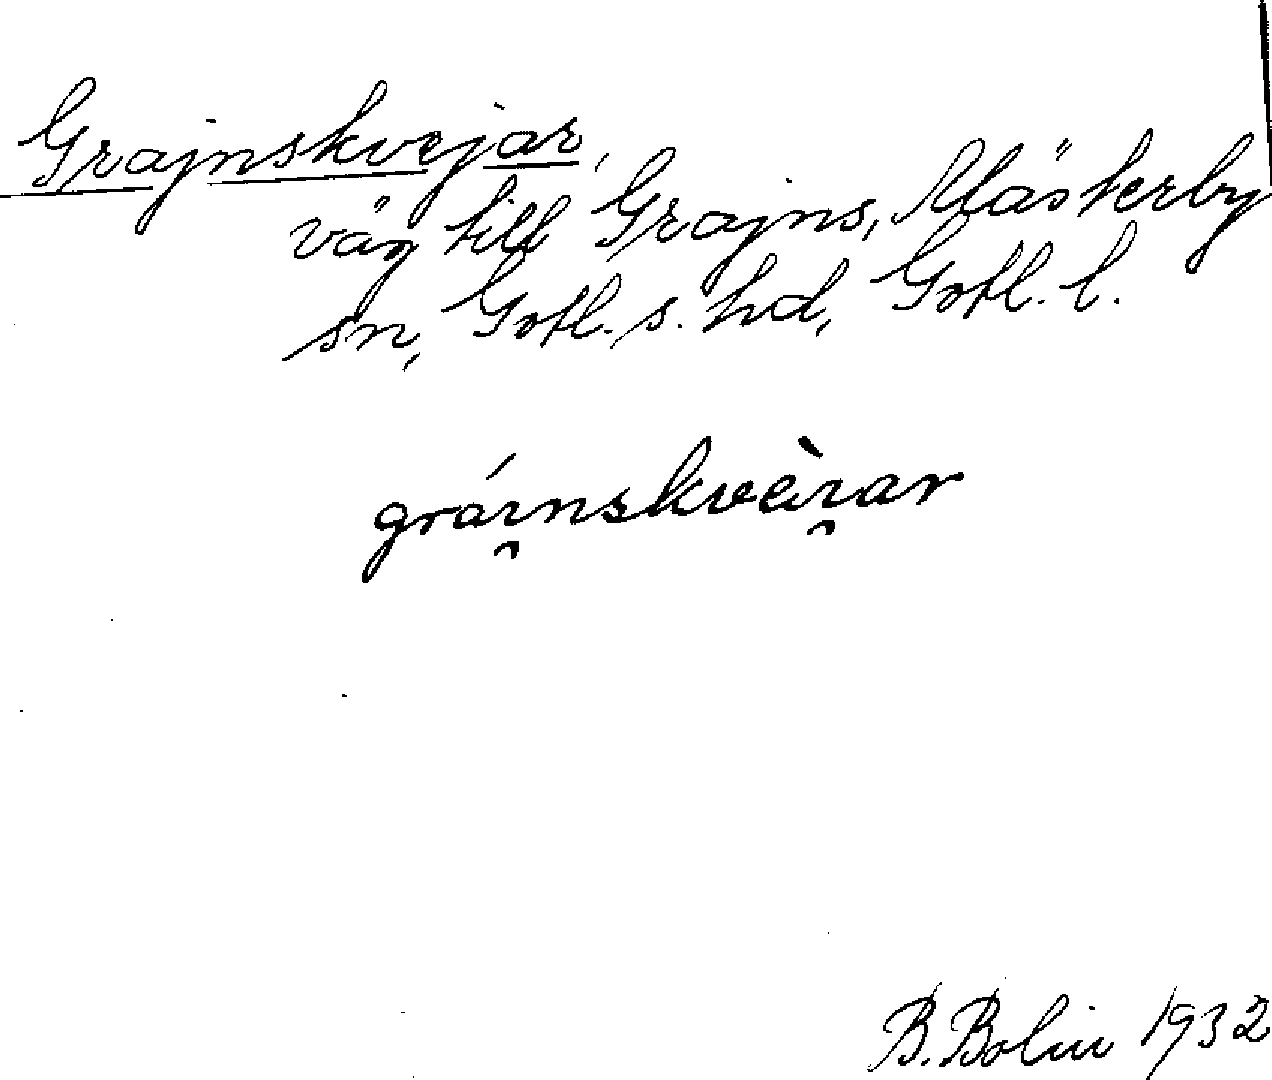 Grajnskvejar,
väg till Grajns, Mästerby
sn, Gotl. s. hd, Gotl. l.
gráɪ̯nskvèɪ̯ar
B. Bolin 1932